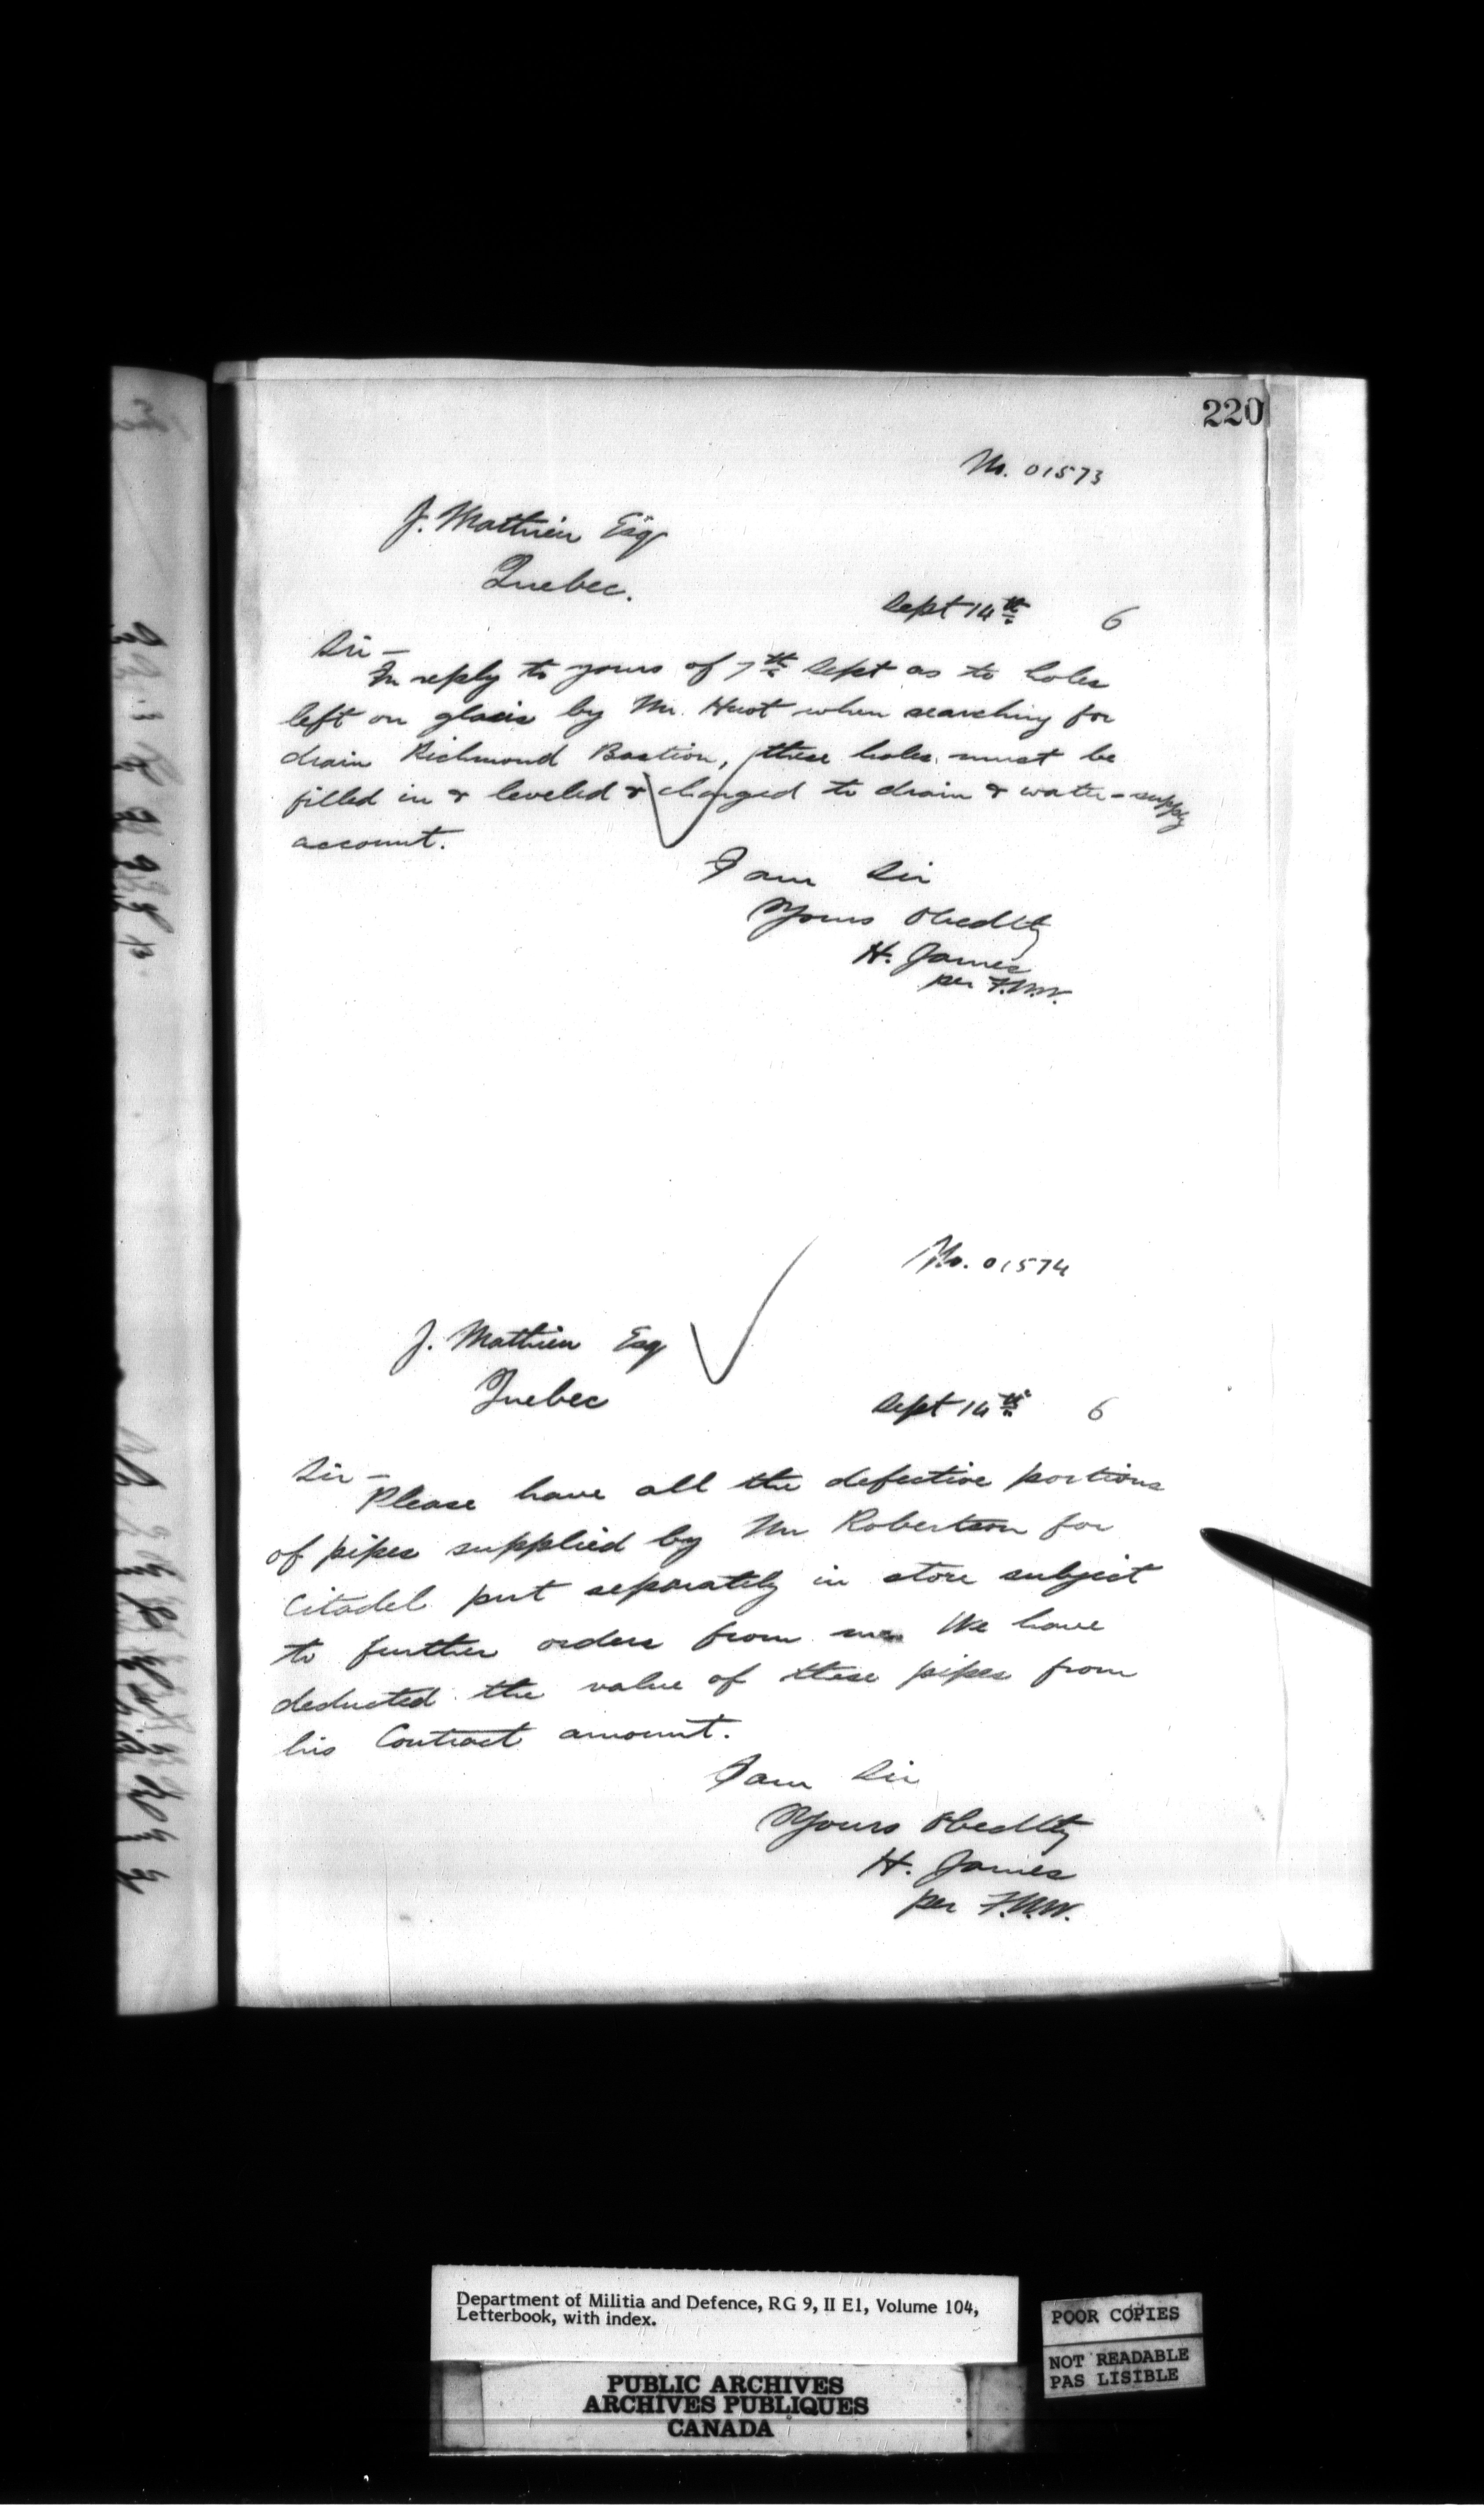 220
No. 01573
J. Mathieu Esq
Quebec.
Sept 14th 6
Sir –
In reply to yours of 7th Sept as to holes
left on glacis by Mr. Huot when searching for
drain Richmond Bastion, these holes must be
filled in & leveled & charged to drain & water-supply
account.
I am Sir
Yours Obedtly
H. James
per
No. 01574
J. Mathieu Esq
Quebec
Sept 14th 6
Sir –
Please have all the defective portions
of pipes supplied by Mr Robertson for
Citadel put separately in store subject
to further orders from me. We have
deducted the value of these pipes from
his Contract amount.
I am Sir
Yours Obedtly
H. James
per
Department of Militia and Defence, RG 9, II E1, Volume 104,
Letterbook, with index.
PUBLIC ARCHIVES
ARCHIVES PUBLIQUES
CANADA
POOR COPIES
NOT READABLE
PAS LISIBLE